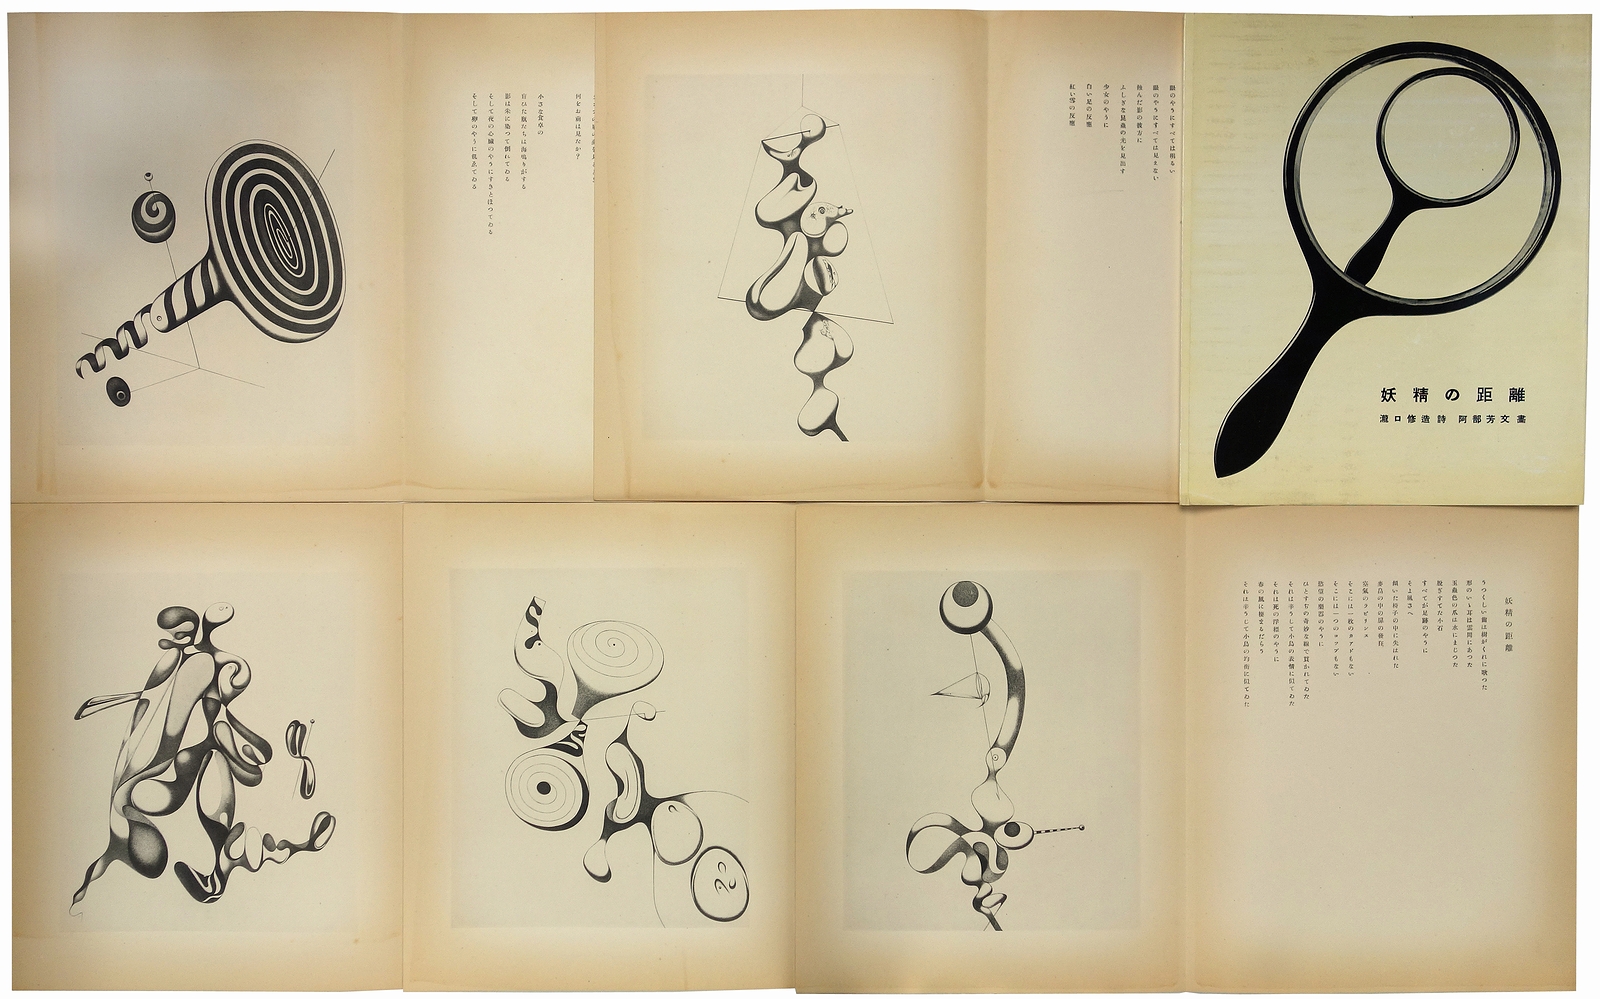 妖精の距離
瀧口修造詩 阿部芳文畫
何をお前は見たか?
小さな食卓の
盲ひた瓶たちは海鳴りがする
影は朱に染つて倒れてゐる
そして夜の心臓のやうにすきとほつてゐる
そして卵のやうに飢ゑてゐる
眼のやうにすべては明るい
眼のやうにすべては見えない
ふしぎな昆蟲の光を見出す
少女のやうに
白い足の反應
紅い雪の反應
妖精の距離
うつくしい歯は樹がくれに歌つた
形のいゝ耳は雲間にあつた
玉蟲色の爪は水にまじつた
脱ぎすてた小石
すべてが足跡のやうに
そよ風さへ
傾いた椅子の中に失はれた
麥畠の中の扉の發狂
空氣のラビリンス
そこには一枚のカアドもない
そこには一つのコップもない
慾望の樂器のやうに
ひとすぢの奇妙な線で貫かれてゐた
それは辛うじて小鳥の表情に似てゐた
それは死の浮標のやうに
春の風に棲まるだらう
それは辛うじて小鳥の均衡に似てゐた